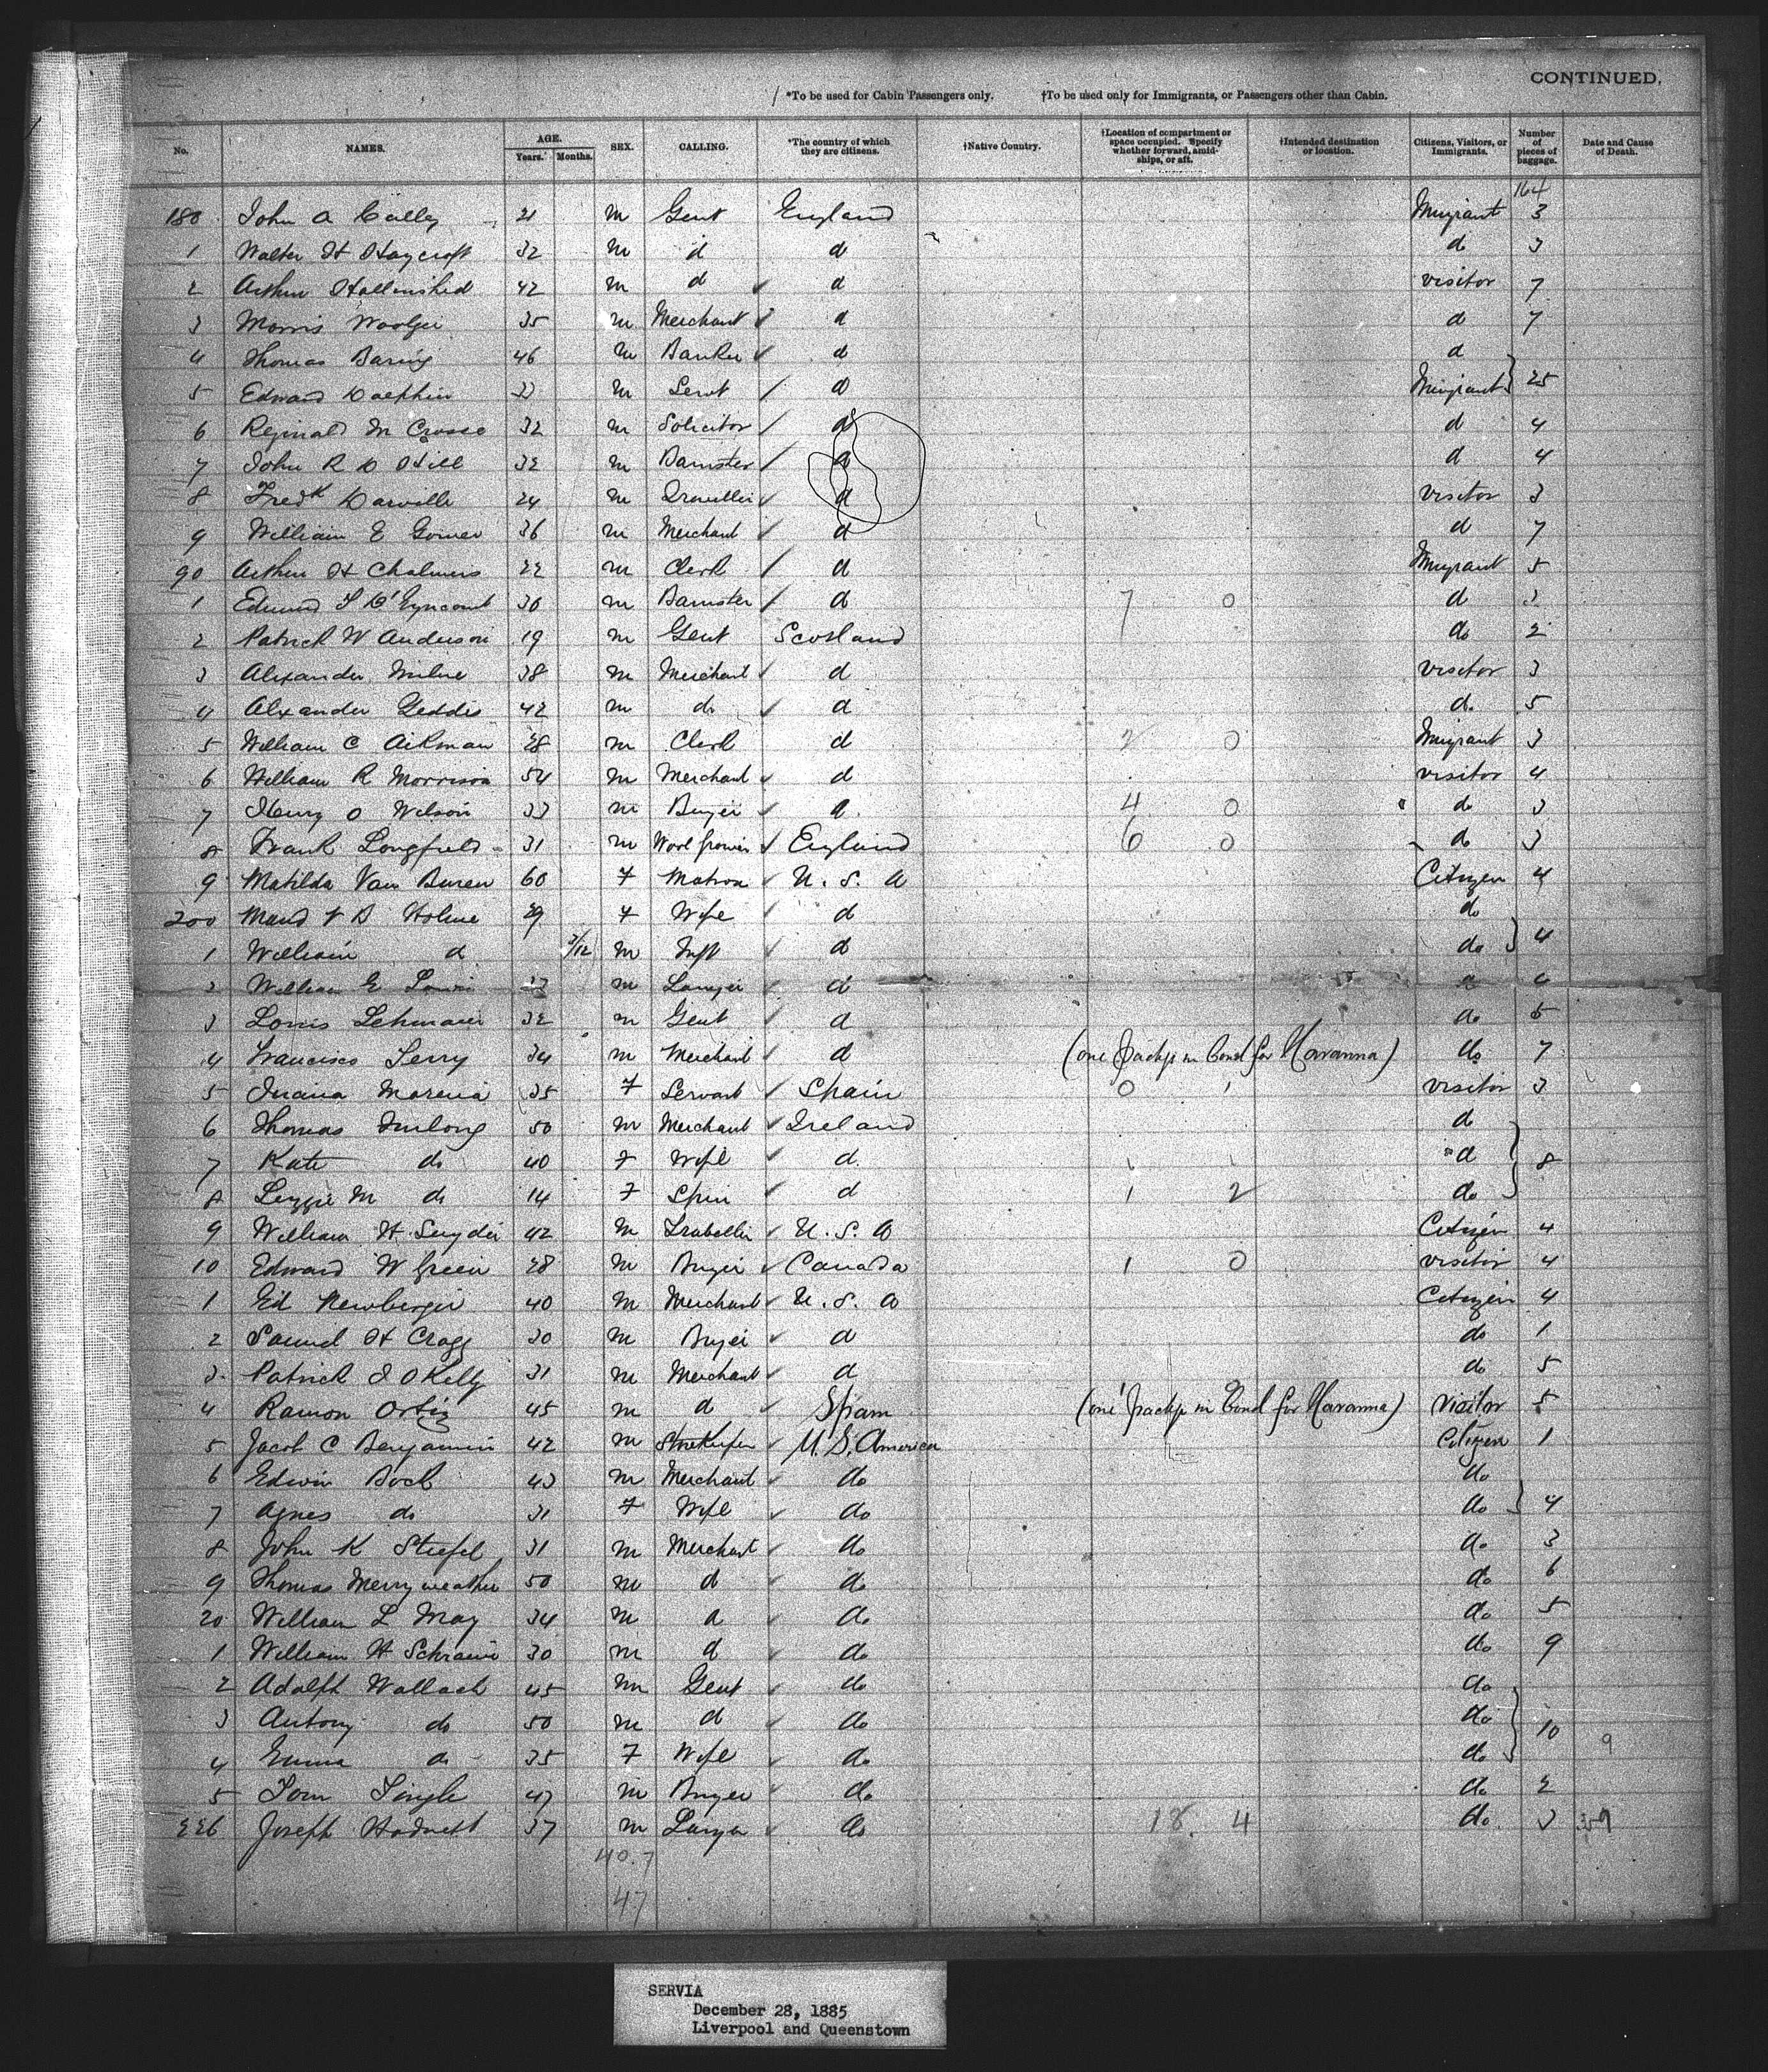 CONTINUED.
*To be used for Cabin Passengers only. †To be used only for Immigrants, or Passengers other than Cabin.
No. NAMES. AGE. Years. Months. SEX. CALLING. *The country of which they are citizens. †Native Country. †Location of compartment or space occupied. Specify whether forward, amidships, or aft. †Intended destination or location. Citizens, Visitors, or Immigrants. Number of pieces of baggage. Date and Cause of Death.
164
180 John A 21 m Gent England Imigrant 3
1 Walter H Haycroft 32 m d d do 3
2 Arthur Hollinshed 42 m d d visitor 7
3 Morris Woolger 35 m Merchant d d 7
4 Thomas Baring 46 m Banker d d
5 Edward m Servt d Imigrant 25
6 Reginald M Crosse 32 m Solicitor d d 4
7 John R D Hill 32 m Barrister d d 4
8 Fredk Darville 24 m Traveller d visitor 3
9 William E 36 m Merchant d d 7
90 Arthur H Chalmers 22 m Clerk d Imigrant 5
1 Edmund 30 m Barrister d 7 0 d
2 Patrick W Anderson 19 m Gent Scotland do 2
3 Alexander Milne 38 m Merchant d visitor 3
4 Alexander Geddes 42 m do d do 5
5 William C Aikman 28 m Clerk d 2 0 Imigrant 3
6 William R Morrison 54 m Merchant d visitor 4
7 Henry O Wilson 33 m Buyer d 4 0 do 3
8 Frank Longfield 31 m Wool grower England 6 0 do 3
9 Matilda Van Buren 60 F Matron U. S. A Citizen 4
200 Maud V B Holme 29 F Wife d do
1 William d 3/12 m Inft d do 4
2 William E m Lawyer d d
3 Louis Lehmaier 32 m Gent d do 5
4 Francisco Terry 34 m Merchant d (one packge in bond for Havanna) do 7
5 Juana Morena 35 F Servant Spain 0 1 visitor 3
6 Thomas Furlong 50 m Merchant Ireland do
7 Kate do 40 F Wife d d 8
8 Lizzie M do 14 F Spin d 1 2 do
9 William H Snyder 42 m Traveller U. S. A Citizen 4
10 Edward W Green 28 m Buyer Canada 1 0 visitor 4
1 Ed Newberger 40 m Merchant U. S. A Citizen 4
2 Samuel H Cragg 30 m Buyer d do 1
3 Patrick J OKelly 31 m Merchant d do 5
4 Ramon Ortiz 45 m d Spain (one packge in bond for Havanna) Visitor 5
5 Jacob C Benjamin 42 m Storekeeper U. S. America Citizen 1
6 Edwin Bock 43 m Merchant do do
7 Agnes do 31 F Wife do do 4
8 John K Stiefel 31 m Merchant do do 3
9 Thomas Merryweather 50 m d do do 6
20 William L May 34 m d do do 5
1 William H 30 m d do do 9
2 Adolph Wallach 45 m Gent do do
3 Antony do 50 m d do do 10
4 Emma do 35 F Wife do do 9
5 Tom Tingle 47 m Buyer do do 2
226 Joseph Hodnett 37 m Lawyer do 18. 4 do 3
40. 7
47
SERVIA
December 28, 1885
Liverpool and Queenstown